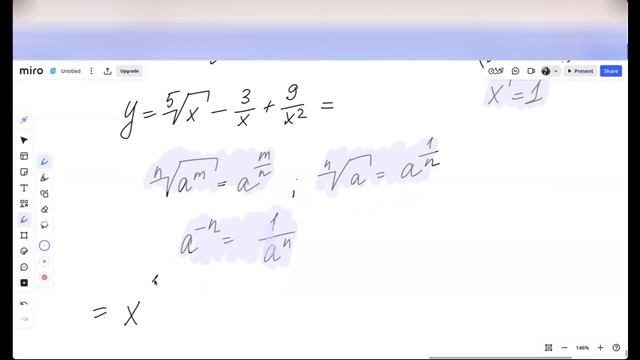 miro Untitled Upgrade Present Share
y = ⁵√x − 3/x + 9/x² =
x' = 1
ⁿ√aᵐ = a^(m/n) ; ⁿ√a = a^(1/n)
a⁻ⁿ = 1/aⁿ
= x
146%